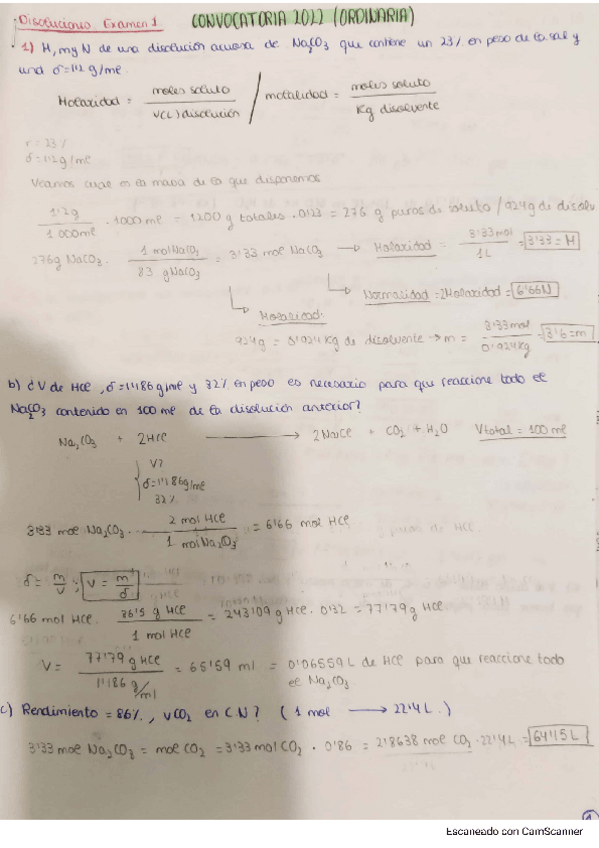 Disoluciones Examen 1 CONVOCATORIA 2022 (ORDINARIA)
1) M, m y N de una disolución acuosa de Na2CO3 que contiene un 23% en peso de la sal y
una δ=1'12 g/ml.
Molaridad = moles soluto / V(L) disolución / molalidad = moles soluto / Kg disolvente
r = 23%
δ=1'12g/ml
Veamos cual es la masa de la que disponemos
1'2g / 1000ml · 1000 ml = 1200 g totales · 0'23 = 276 g puros de soluto / 924g de disolv
276g NaCO3 · 1 mol NaCO3 / 83 g NaCO3 = 3'33 mol NaCO3 → Molaridad = 3'33 mol / 1L = 3'33 = M
Normalidad = 2Molaridad = 6'66N
Molaridad:
924g = 0'924 Kg de disolvente → m = 3'33 mol / 0'924Kg = 3'6 = m
b) ¿V de HCl, δ=1'186 g/ml y 32% en peso es necesario para que reaccione todo el
Na2CO3 contenido en 100 ml de la disolución anterior?
Na2CO3 + 2HCl → 2NaCl + CO2 + H2O Vtotal = 100 ml
V?
δ=1'186g/ml
32%
3'33 mol Na2CO3 · 2 mol HCl / 1 mol Na2O3 = 6'66 mol HCl
δ = m/V ; V = m/δ
6'66 mol HCl · 36'5 g HCl / 1 mol HCl = 243'09 g HCl · 0'32 = 77'79 g HCl
V = 77'79 g HCl / 1'186 g/ml = 65'59 ml = 0'06559 L de HCl para que reaccione todo
el Na2CO3.
c) Rendimiento = 86%, VCO2 en CN? (1 mol → 22'4 L.)
3'33 mol Na2CO3 = mol CO2 = 3'33 mol CO2 · 0'86 = 2'8638 mol CO2 · 22'4L = 64'15 L
1
Escaneado con CamScanner